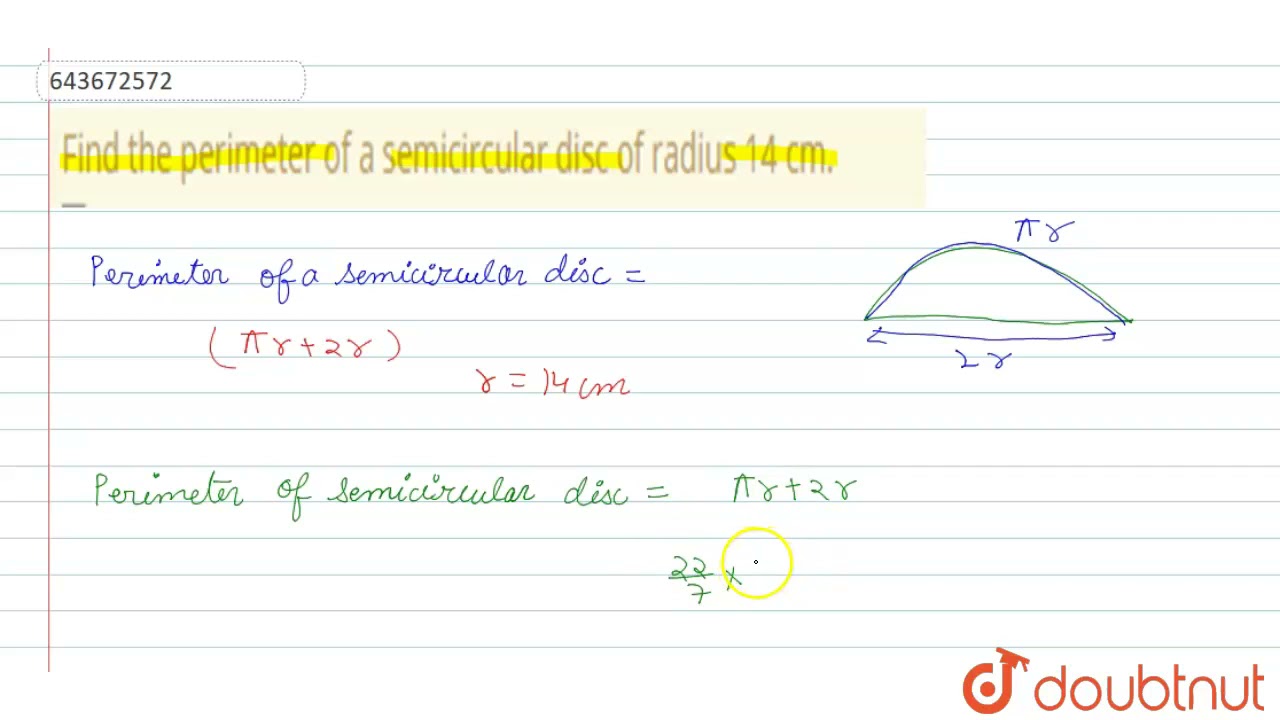 643672572
Find the perimeter of a semicircular disc of radius 14 cm.
πr
Perimeter of a semicircular disc =
(πr+2r)
2r
r = 14 cm
Perimeter of semicircular disc = πr+2r
22/7 ×
doubtnut